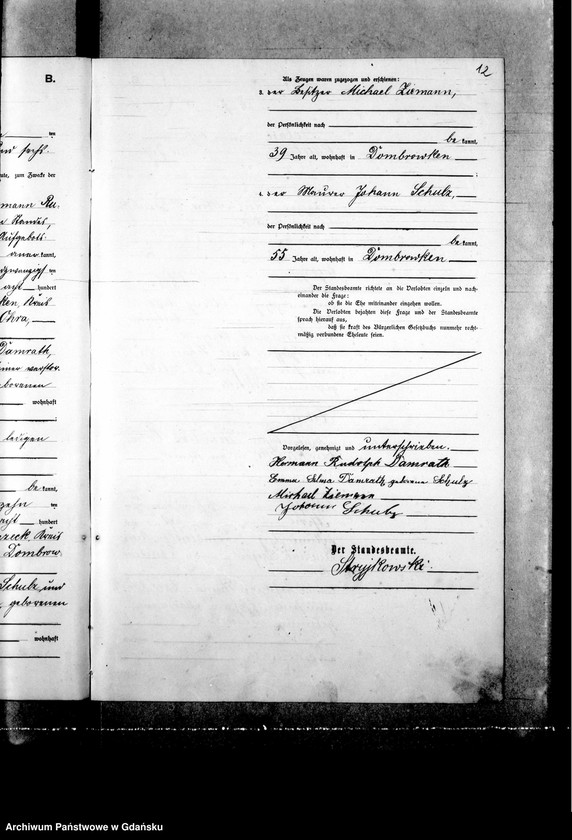 B.
ten
sechs
, zum Zwecke der
mann Ru-
Standes,
Aufgebots-
aner kannt,
ten
acht hundert
ken, Kreis
Ohra,
Damrath,
geborenen
wohnhaft
;
Zeugen
be kannt,
zehn ten
acht hundert
Kreis
Dombrow-
Schulz, und
, geborenen
wohnhaft
12
Als Zeugen waren zugezogen und erschienen:
3. der Besitzer Michael Ziemann,
der Persönlichkeit nach
be kannt,
39 Jahre alt, wohnhaft in Dombrowken
;
4. der Maurer Johann Schulz,
der Persönlichkeit nach
be kannt,
55 Jahre alt, wohnhaft in Dombrowken
Der Standesbeamte richtete an die Verlobten einzeln und nach-
einander die Frage:
ob sie die Ehe miteinander eingehen wollen.
Die Verlobten bejahten diese Frage und der Standesbeamte
sprach hierauf aus,
daß sie kraft des Bürgerlichen Gesetzbuchs nunmehr recht-
mäßig verbundene Eheleute seien.
Vorgelesen, genehmigt und unterschrieben.
Hermann Rudolph Damrath
Emma Selma Damrath, geborene Schulz
Michael Ziemann
Johann Schulz
Der Standesbeamte.
Stryjkowski
Archiwum Państwowe w Gdańsku